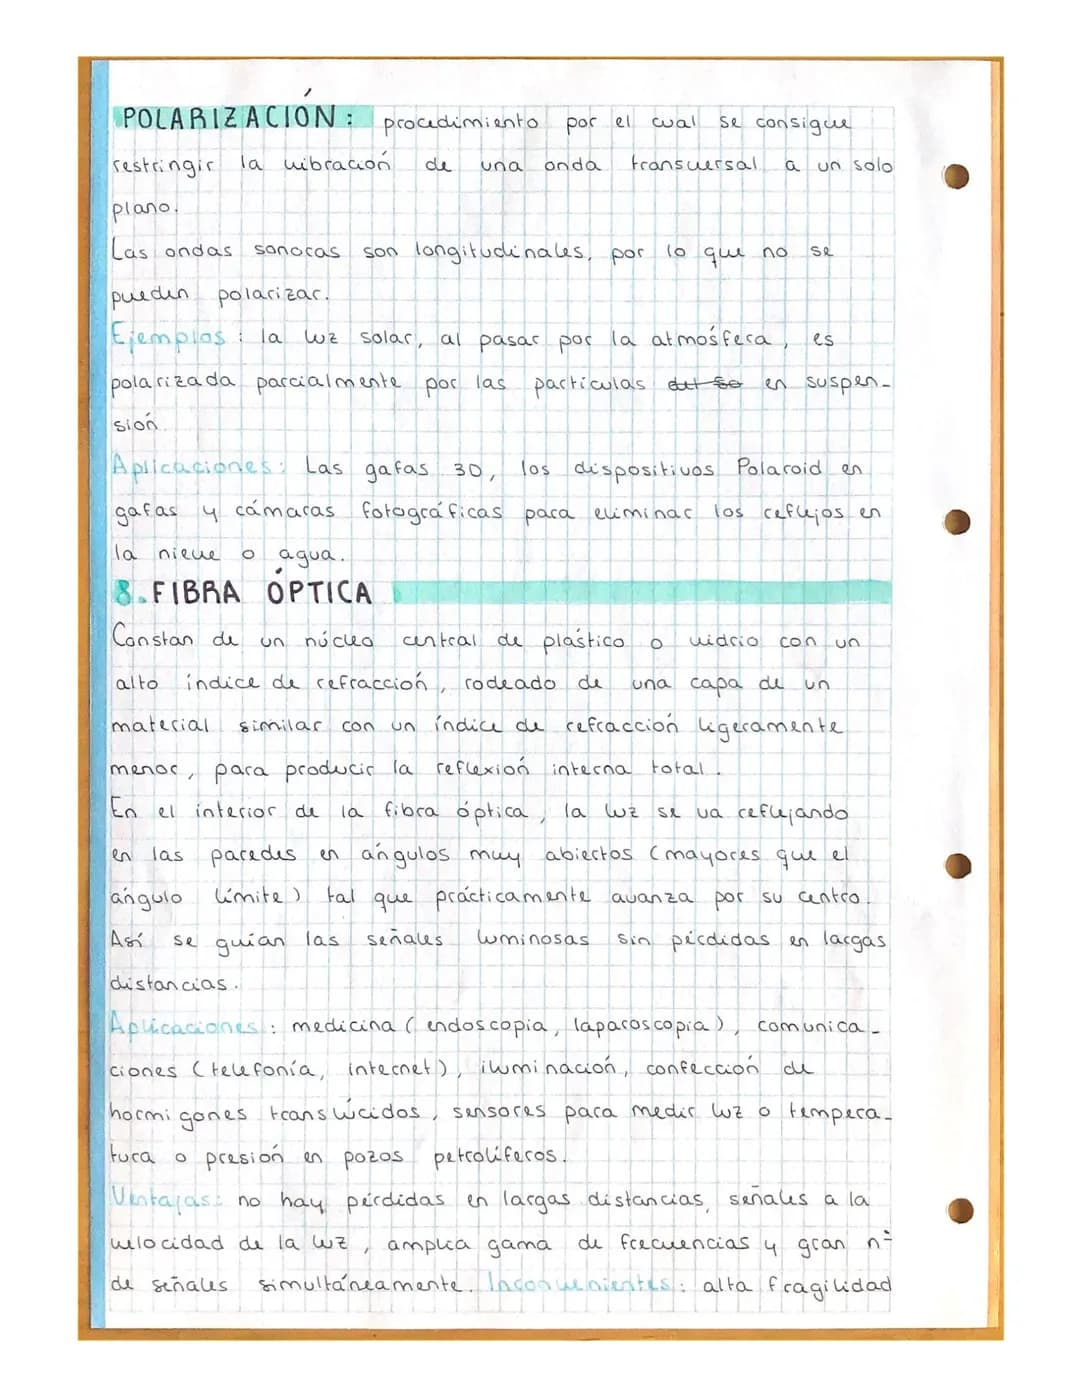 POLARIZACIÓN: procedimiento por el cual se consigue
restringir la vibración de una onda transversal a un solo
plano.
Las ondas sonoras son longitudinales, por lo que no se
pueden polarizar.
Ejemplos: la luz solar, al pasar por la atmósfera, es
polarizada parcialmente por las partículas en suspen-
sión
Aplicaciones: Las gafas 3D, los dispositivos Polaroid en
gafas y cámaras fotográficas para eliminar los reflejos en
la nieve o agua.
8. FIBRA ÓPTICA
Constan de un núcleo central de plástico o vidrio con un
alto índice de refracción, rodeado de una capa de un
material similar con un índice de refracción ligeramente
menor, para producir la reflexión interna total.
En el interior de la fibra óptica, la luz se va reflejando
en las paredes en ángulos muy abiertos (mayores que el
ángulo límite) tal que prácticamente avanza por su centro.
Así se guían las señales luminosas sin pérdidas en largas
distancias.
Aplicaciones: medicina (endoscopia, laparoscopia), comunica-
ciones (telefonía, internet), iluminación, confección de
hormigones translúcidos, sensores para medir luz o tempera-
tura o presión en pozos petrolíferos.
Ventajas: no hay pérdidas en largas distancias, señales a la
velocidad de la luz, amplia gama de frecuencias y gran nº
de señales simultáneamente. Inconvenientes: alta fragilidad